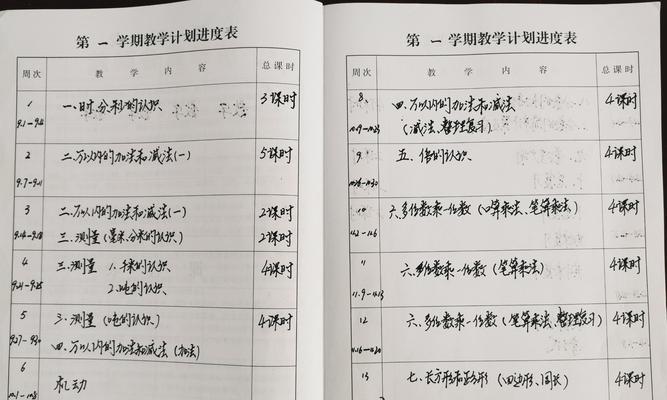 第 一 学期教学计划进度表
周次 教 学 内 容 总课时
1 一.时.分.秒的认识 3课时
9.1-9.4
2 二.万以内的加法和减法(一) 5课时
9.7-9.11
3 二.万以内的加法和减法(一) 2课时
9.14-9.18 三.测量(毫米、分米的认识) 2课时
4 三.测量 1.千米的认识 4课时
9.21-9.25 2.吨的认识
5 三.测量(吨的认识) 4课时
9.27-9.30 四.万以内的加法和减法(加法)
6 机动
10.1-10.8
第 一 学期教学计划进度表
周次 教 学 内 容 总课时
8 四.万以内的加法和减法 4课时
10.19-10.23 (减法、整理复习)
9 五、倍的认识 4课时
10.26-10.30
10 六.多位数乘一位数(口算乘法、笔算乘法) 4课时
11.2-11.6
11 六、多位数乘一位数(笔算乘法) 4课时
11.9-11.13
12 六、多位数乘一位数(笔算乘法、整理复习) 4课时
11.16-11.20
13 七、长方形和正方形(四边形、周长) 4课时